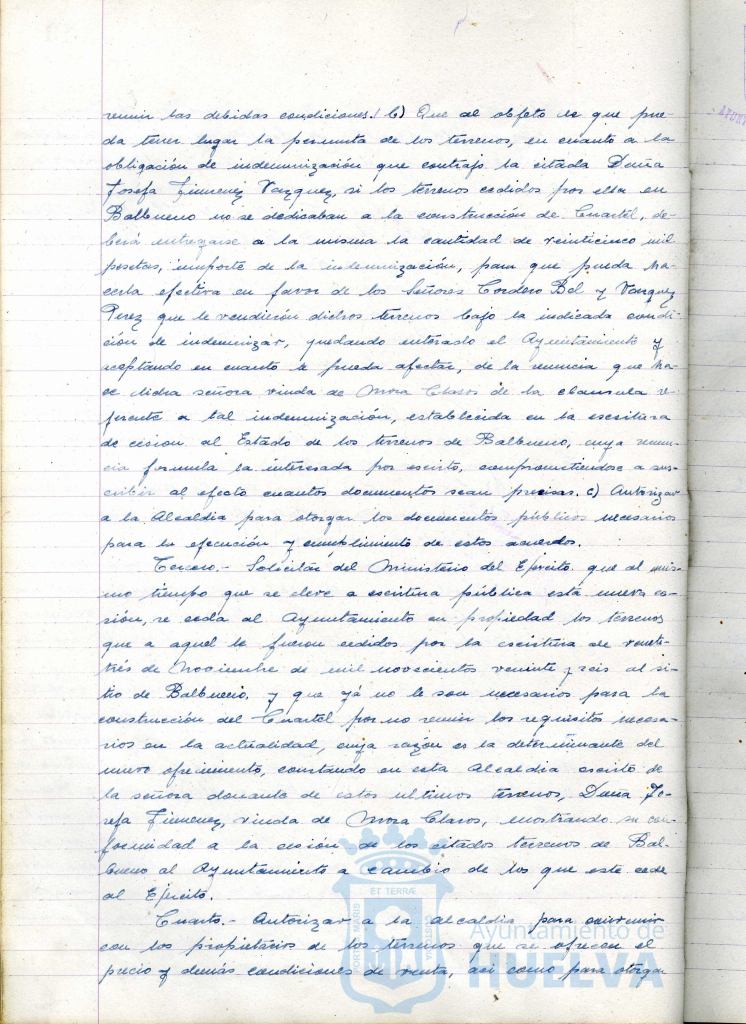 reunir las debidas condiciones.! b) Que al objeto de que pue-
da tener lugar la permuta de los terrenos, en cuanto a la
obligación de indemnización que contrajo la citada Doña
Josefa Jimenez Vazquez, si los terrenos cedidos por ella en
Balbueno no se dedicaban a la construcción de Cuartel, de-
berá entregarse a la misma la cantidad de veinticinco mil
pesetas, importe de la indemnización, para que pueda ha-
cerla efectiva en favor de los Señores Cordero Bel y Vazquez
Perez que le vendieron dichos terrenos bajo la indicada condi-
ción de indemnizar, quedando enterado el Ayuntamiento y
aceptando en cuanto le pueda afectar, de la renuncia que ha-
ce dicha señora viuda de Mora Claros de la clausula re-
ferente a tal indemnización, establecida en la escritura
de cesion al Estado de los terrenos de Balbueno, cuya renun-
cia formula la interesada por escrito, comprometiendose a sus-
cribir al efecto cuantos documentos sean precisos. c) Autorizar
a la Alcaldia para otorgar los documentos públicos necesarios
para la ejecución y cumplimiento de estos acuerdos.
Tercero.- Solicitar del Ministerio del Ejército que al mis-
mo tiempo que se eleve a escritura pública está nueva ce-
sión, se ceda al Ayuntamiento en propiedad los terrenos
que a aquel le fueron cedidos por la escritura de veinti-
trés de Noviembre de mil novecientos veinte y seis al si-
tio de Balbueno, y que yá no le son necesarios para la
construcción del Cuartel por no reunir los requisitos necesa-
rios en la actualidad, cuya razón es la determinante del
nuevo ofrecimiento, constando en esta Alcaldia escrito de
la señora donante de estos ultimos terrenos, Doña Jo-
sefa Jimenez, viuda de Mora Claros, mostrando su con-
formidad a la cesión de los citados terrenos de Bal-
bueno al Ayuntamiento a cambio de los que este cede
al Ejército.
Cuarto.- Autorizar a la alcaldia para convenir
con los propietarios de los terrenos que se ofrecen el
precio y demás condiciones de venta, así como para otorgar
PORTVS MARIS ET TERRÆ CVSTODIA
Ayuntamiento de
HUELVA